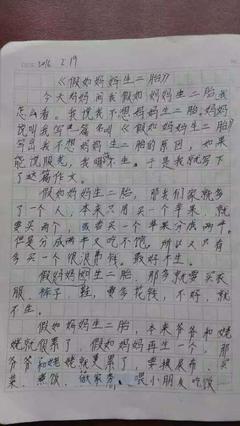 2016 2 19
《假如妈妈生二胎》
今天妈妈问我假如妈妈生二胎,我
怎么看。我说我不想妈妈生二胎。妈妈
说叫我写一篇名叫《假如妈妈生二胎》
写出我不想妈妈生二胎的原因,如果
能说服她,我就不生。于是我就写下
了这篇作文。
假如妈妈生二胎,那我们家就多
了一个人,本来只用买一个苹果,就
要买两个,或者买一个苹果分成两半。
但是分成两半又吃不饱,所以又只有
多买一个很浪费钱。最好不生。
假如妈妈生二胎,那多就要买衣
服、裤子、鞋,要多花钱,不好,就
不生。
假如妈妈生二胎,本来爷爷和姥
姥就很累了,假如妈妈再生一个,那
爷爷和姥姥就更累了,要换尿布、买
菜、煮饭、做家务、喂小朋友吃饭